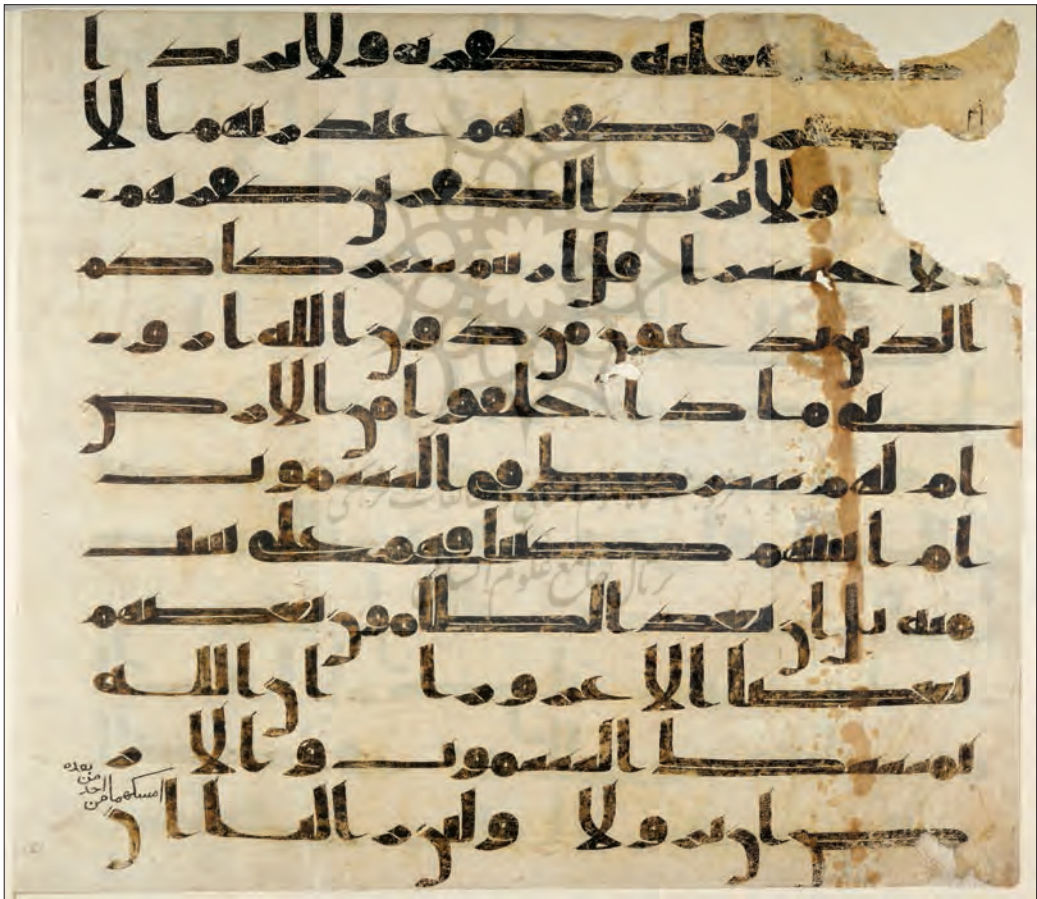 فعليه كفره ولا يزيد ا
لكفرين كفرهم عند ربهم الا
ولا يزيد الكفرين كفرهم
لا خسارا قل اريتم شركاكم
الذين تدعون من دون الله ارو
ني ماذا خلقوا من الارض
ام لهم شرك في السموت
ام اتينهم كتبا فهم على بينت
منه بل ان يعد الظلمون بعضهم
بعضا الا غرورا ان الله
يمسك السموت والار
ض ان تزولا ولين زالتا ان
امسكهما من احد من بعده
پژوهشگاه علوم انسانی و مطالعات فرهنگی
پرتال جامع علوم انسانی